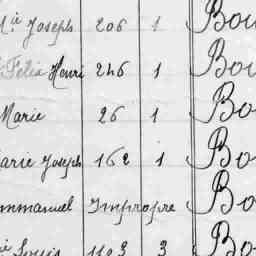 Mie Joseph 206 1 Bou
Félix Henri 246 1 Bou
Marie 26 1 Bo
arie Joseph 162 1 Bo
mmanuel Impropre Bo
Louis 1103 3 Bo